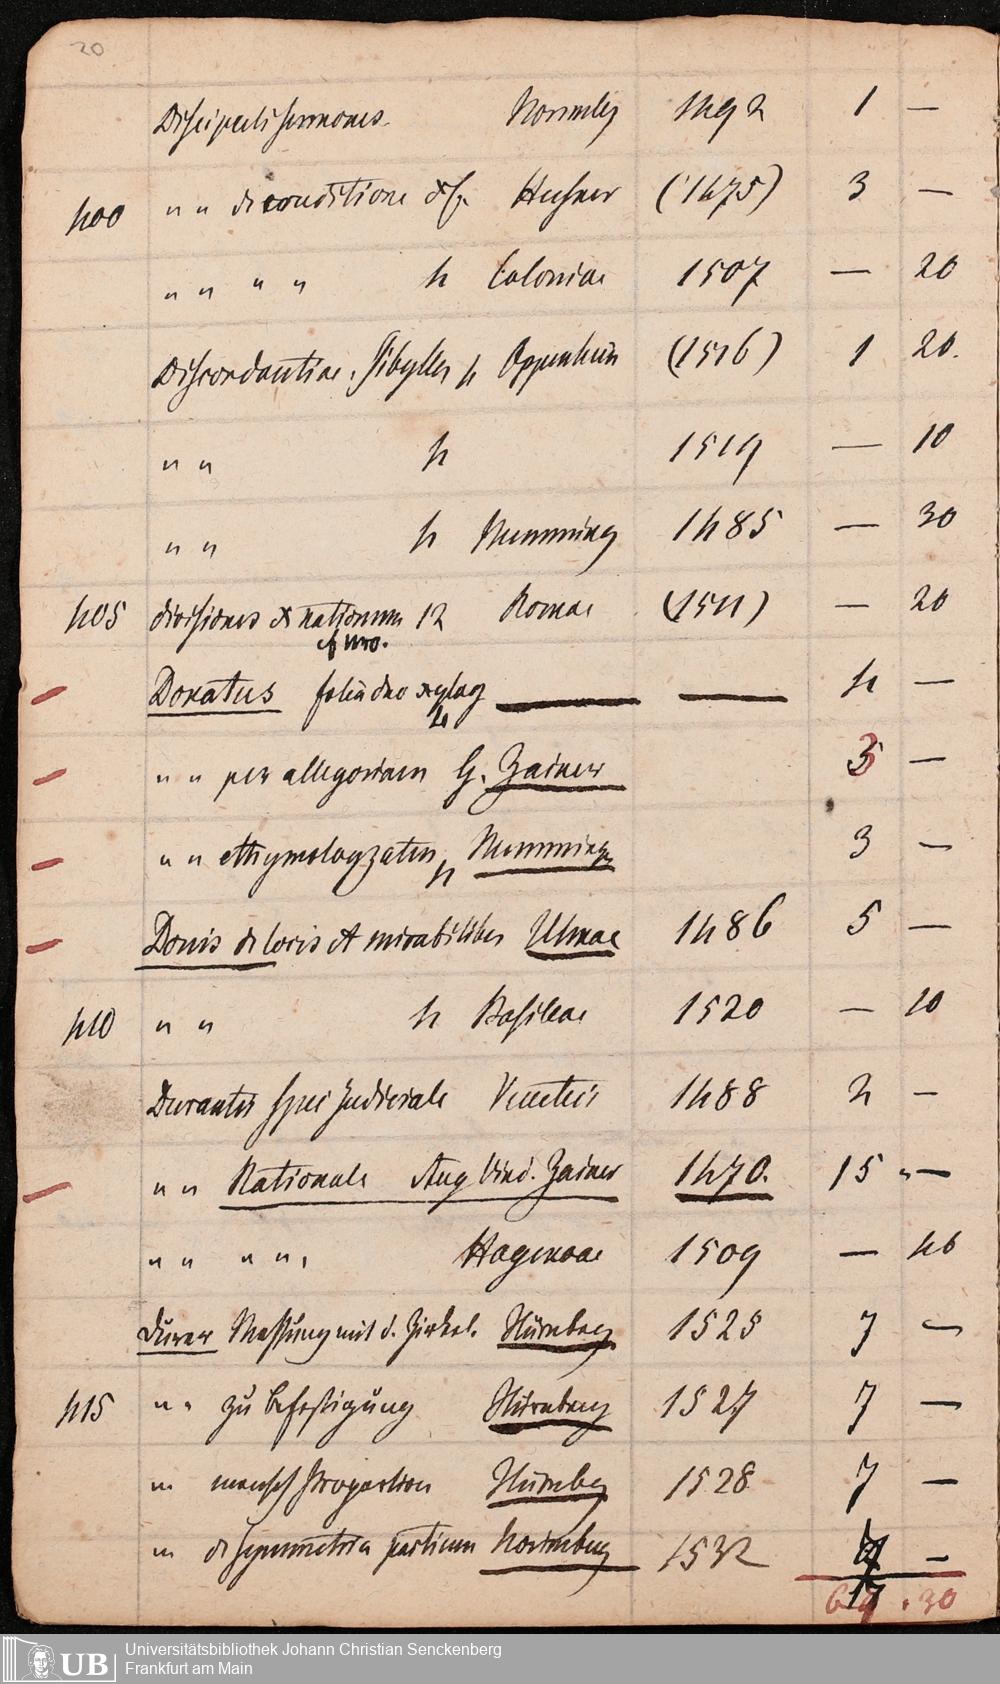 20
Discipuli sermones. Norimbg 1492 1 —
400 " " de conditione &c. Husner (1475) 3 —
" " " " 4 Coloniae 1507 — 20
Discordantiae, Sibylles 4 Oppenheim (1516) 1 20.
" " 4 1519 — 10
" " 4 Memming 1485 — 30
405 divisiones X nationum 12 Romae (1511) — 20
Donatus folia duo xylog 4 —
" " per allegoriam G. Zainer 3 —
" " ethymologyzatus 4 Memming 3 —
Donis de locis et mirabilibus Ulmae 1486 5 —
410 " " 4 Basileae 1520 — 10
Durantis Spec judiciale Venetiis 1488 2 —
" " Rationale Aug Vind. Zainer 1470. 15 " —
" " " " Hagenoae 1509 — 40
Dürer Messung mit d. Zirkel. Nürnberg 1525 7 —
415 " " zu Befestigung Nürnberg 1527 7 —
" mensch Proportion Nürnbg 1528 7 —
" de symmetria partium Norimberg 1532 —
30
UB Universitätsbibliothek Johann Christian Senckenberg
Frankfurt am Main